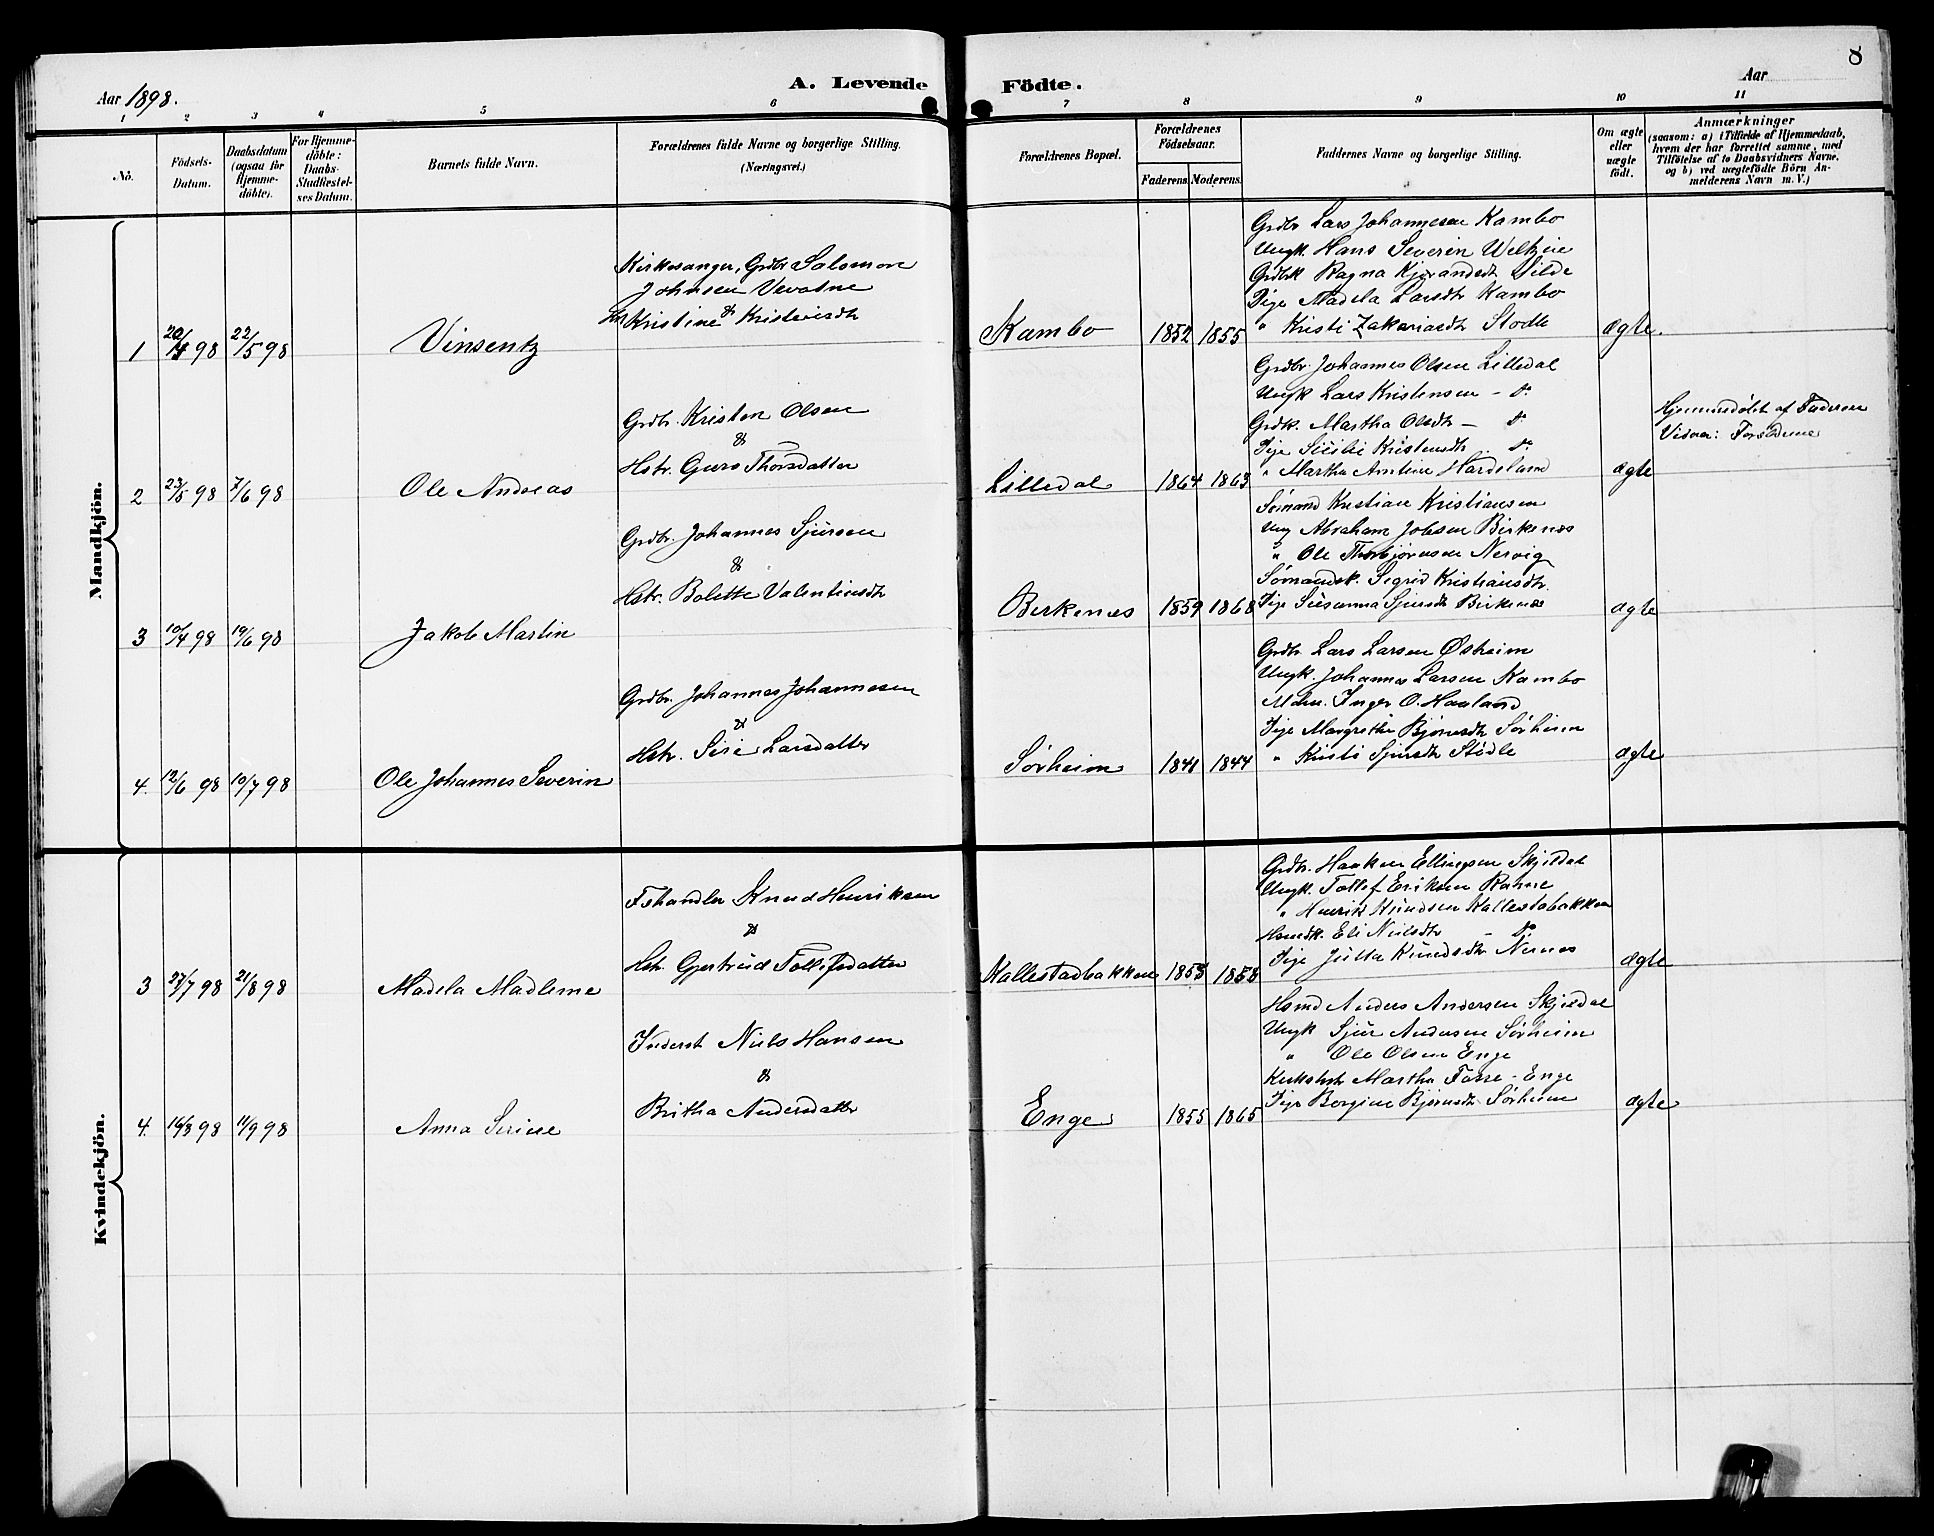 8
Aar 1898.
A. Levende Födte.
Aar
1 2 3 4 5 6 7 8 9 10 11
No.
Födsels-Datum.
Daabsdatum (ogsaa for Hjemme-döbte).
For Hjemme-döbte: Daabs-Stadfæstel-ses Datum.
Barnets fulde Navn.
Forældrenes fulde Navne og borgerlige Stilling.
(Næringsvei.)
Forældrenes Bopæl.
Forældrenes Födselsaar.
Faderens. Moderens.
Faddernes Navne og borgerlige Stilling.
Om ægte eller uægte födt.
Anmærkninger
(saasom: a) i Tilfælde af Hjemmedaab,
hvem der har forrettet samme, med
Tilföielse af to Daabsvidners Navne,
og b) ved uægtefödte Börn An-
melderens Navn m. V.)
Mandkjön.
1 20/4 98 22/5 98 Vinsentz
Kirkesanger, Grdbr Salomon
Johnsen Vevatne
& Kristine Kristensdtr
Kambo 1852 1855
Grdbr Lars Johannesen Kambo
Ungk. Hans Severin
Grdbk Ragna Silde
Pige Madela Larsdtr Kambo
" Kristi Zakariasdtr Stødle
ægte.
2 23/5 98 7/6 98 Ole Andreas
Grdbr. Kristen Olsen
&
Hstr. Guro Thorsdatter
Lilledal 1864 1863
Grdbr. Johannes Olsen Lilledal
Ungk Lars Kristensen - do
Grdk. Martha Olsdtr - do
Pige Kristensdtr do
" Martha Antine
ægte
Hjemmedøbt af Faderen
3 10/4 98 19/6 98 Jakob Martin
Grdbr. Johannes Sjursen
&
Hstr. Bolette Valentinsdtr
Birkenes 1859 1868
Sømand Kristian Kristiansen
Ung Abraham Jobsen Birkenes
" Ole Thorbjørnsen Nervig
Sømandsk. Sigrid Kristiansdtr.
Pige Susanna Sjursdtr Birkenes
ægte
4. 12/6 98 10/7 98 Ole Johannes Severin
Grdbr. Johannes Johannesen
&
Hstr. Siri Larsdatter
Sørheim 1841 1844
Grdbr Lars Larsen Øsheim
Ungk. Johannes Larsen Kambo
Mdm. Inger O. Hauland
Pige Margrethe Bjørnsdtr Sørheim
" Kristi Sjursdtr Stødle
ægte
Kvindekjön.
3 27/7 98 21/8 98 Madela Madlene
Fshandler Knud Henriksen
&
Hstr. Gjertrud Tollefsdatter
Kallestadbakken 1853 1858
Grdbr. Haaken Ellingsen Skjeldal
Ungk. Tollef Eriksen Ranne
" Henrik Knudsen Kallestabakken
Hsmdk. Eli Nielsdtr - do
Pige Julla Knudsdtr Nernes
ægte
4. 16/8 98 11/9 98 Anna Serine
Inderst Niels Hansen
&
Britha Andersdatter
Enge 1855 1865
Hsmd Anders Andersen Skjeldal
Ungk Sjur Andersen Sørheim
" Ole Olsen Enge
Martha Farse - Enge
Pige Borgine Bjørnsdtr Sørheim
ægte